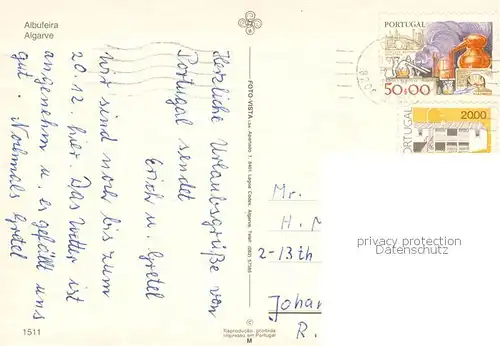 Albufeira
Algarve
Herzliche Urlaubsgrüße von
Portugal sendet
Erich u. Gretel
Wir sind noch bis zum
20.12. hier. Das Wetter ist
angenehm u. es gefällt uns
gut. Nochmals Gretel
1511
FOTO-VISTA
Apartado 7. 8401 Lagoa Codex. Algarve. Telef. (082) 57785
PORTUGAL
50$00
PORTUGAL
20.00
Mr.
H.
2-13th
Johan
R.
privacy protection
Datenschutz
©
Reprodução proibida
Impresso em Portugal
M